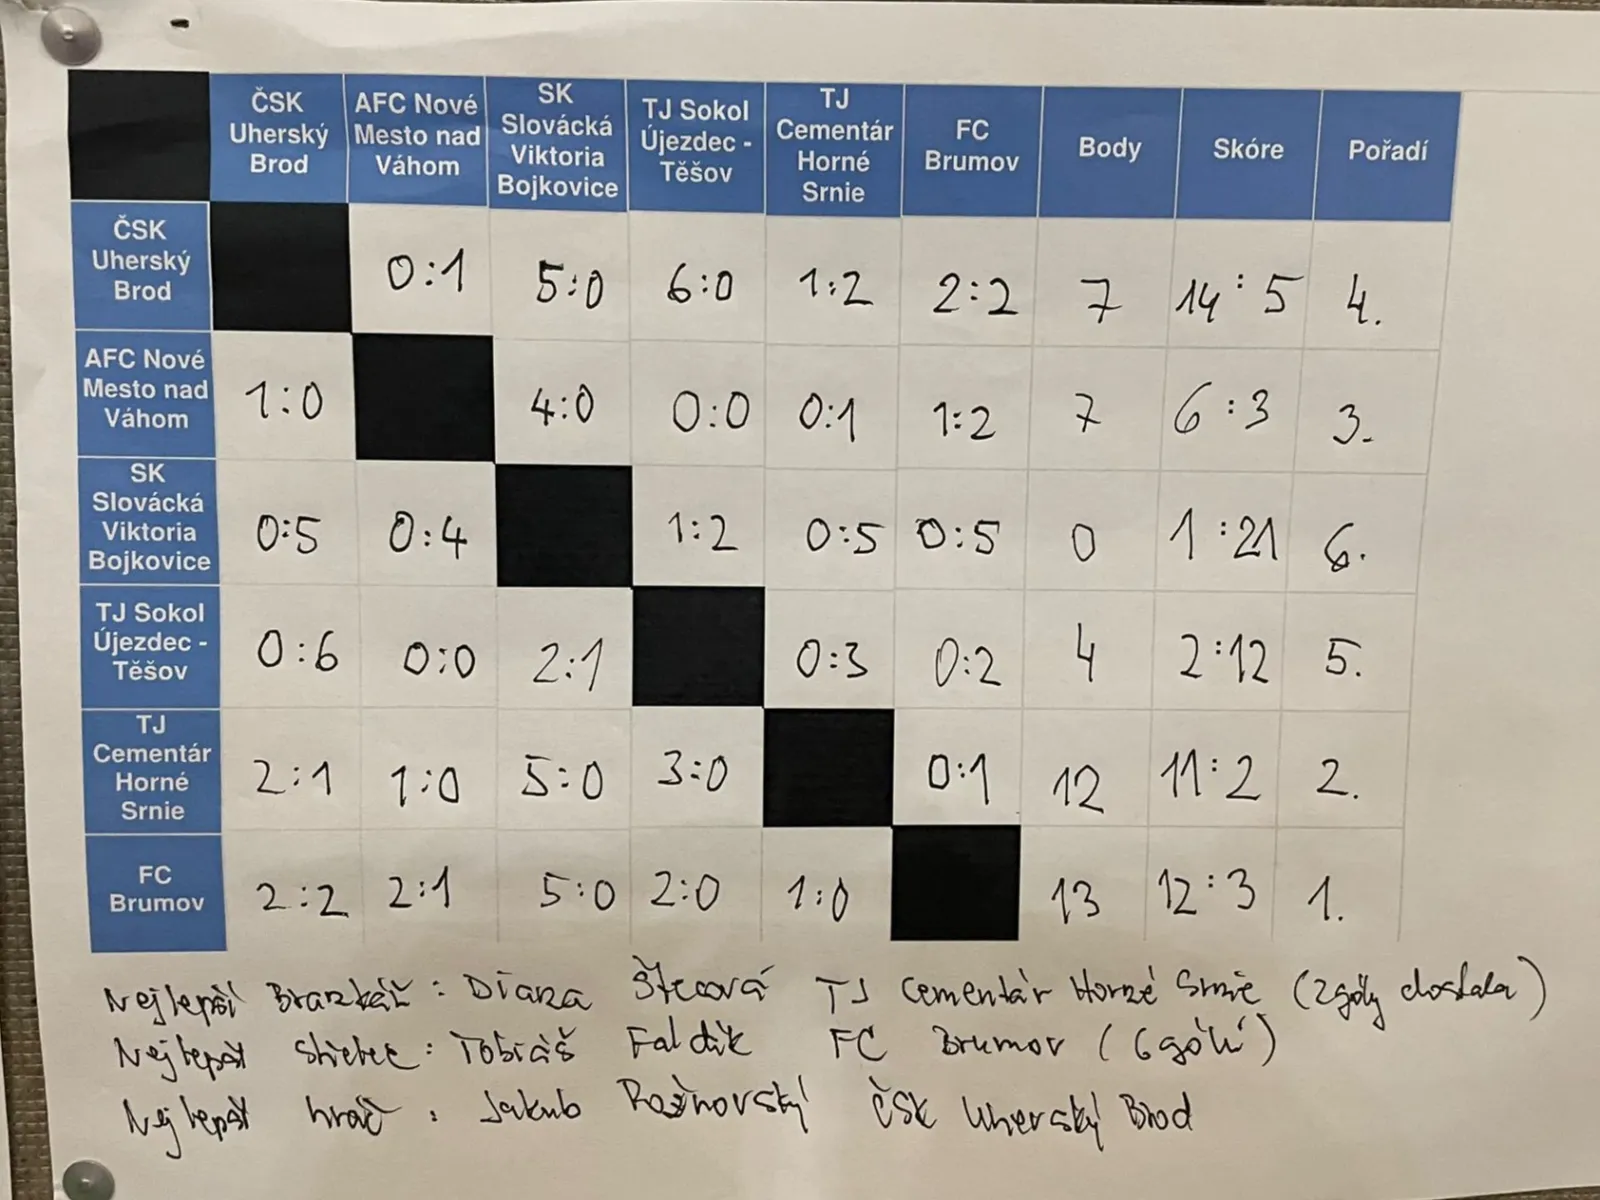 ČSK Uherský Brod AFC Nové Mesto nad Váhom SK Slovácká Viktoria Bojkovice TJ Sokol Újezdec - Těšov TJ Cementár Horné Srnie FC Brumov Body Skóre Pořadí
ČSK Uherský Brod 0:1 5:0 6:0 1:2 2:2 7 14:5 4.
AFC Nové Mesto nad Váhom 1:0 4:0 0:0 0:1 1:2 7 6:3 3.
SK Slovácká Viktoria Bojkovice 0:5 0:4 1:2 0:5 0:5 0 1:21 6.
TJ Sokol Újezdec - Těšov 0:6 0:0 2:1 0:3 0:2 4 2:12 5.
TJ Cementár Horné Srnie 2:1 1:0 5:0 3:0 0:1 12 11:2 2.
FC Brumov 2:2 2:1 5:0 2:0 1:0 13 12:3 1.
Nejlepší Brankář: Diana TJ Cementár Horné Srnie (2góly dostala)
Nejlepší střelec: Tobiáš Faldík FC Brumov (6gólů)
Nejlepší hráč: Jakub Rožnovský ČSK Uherský Brod